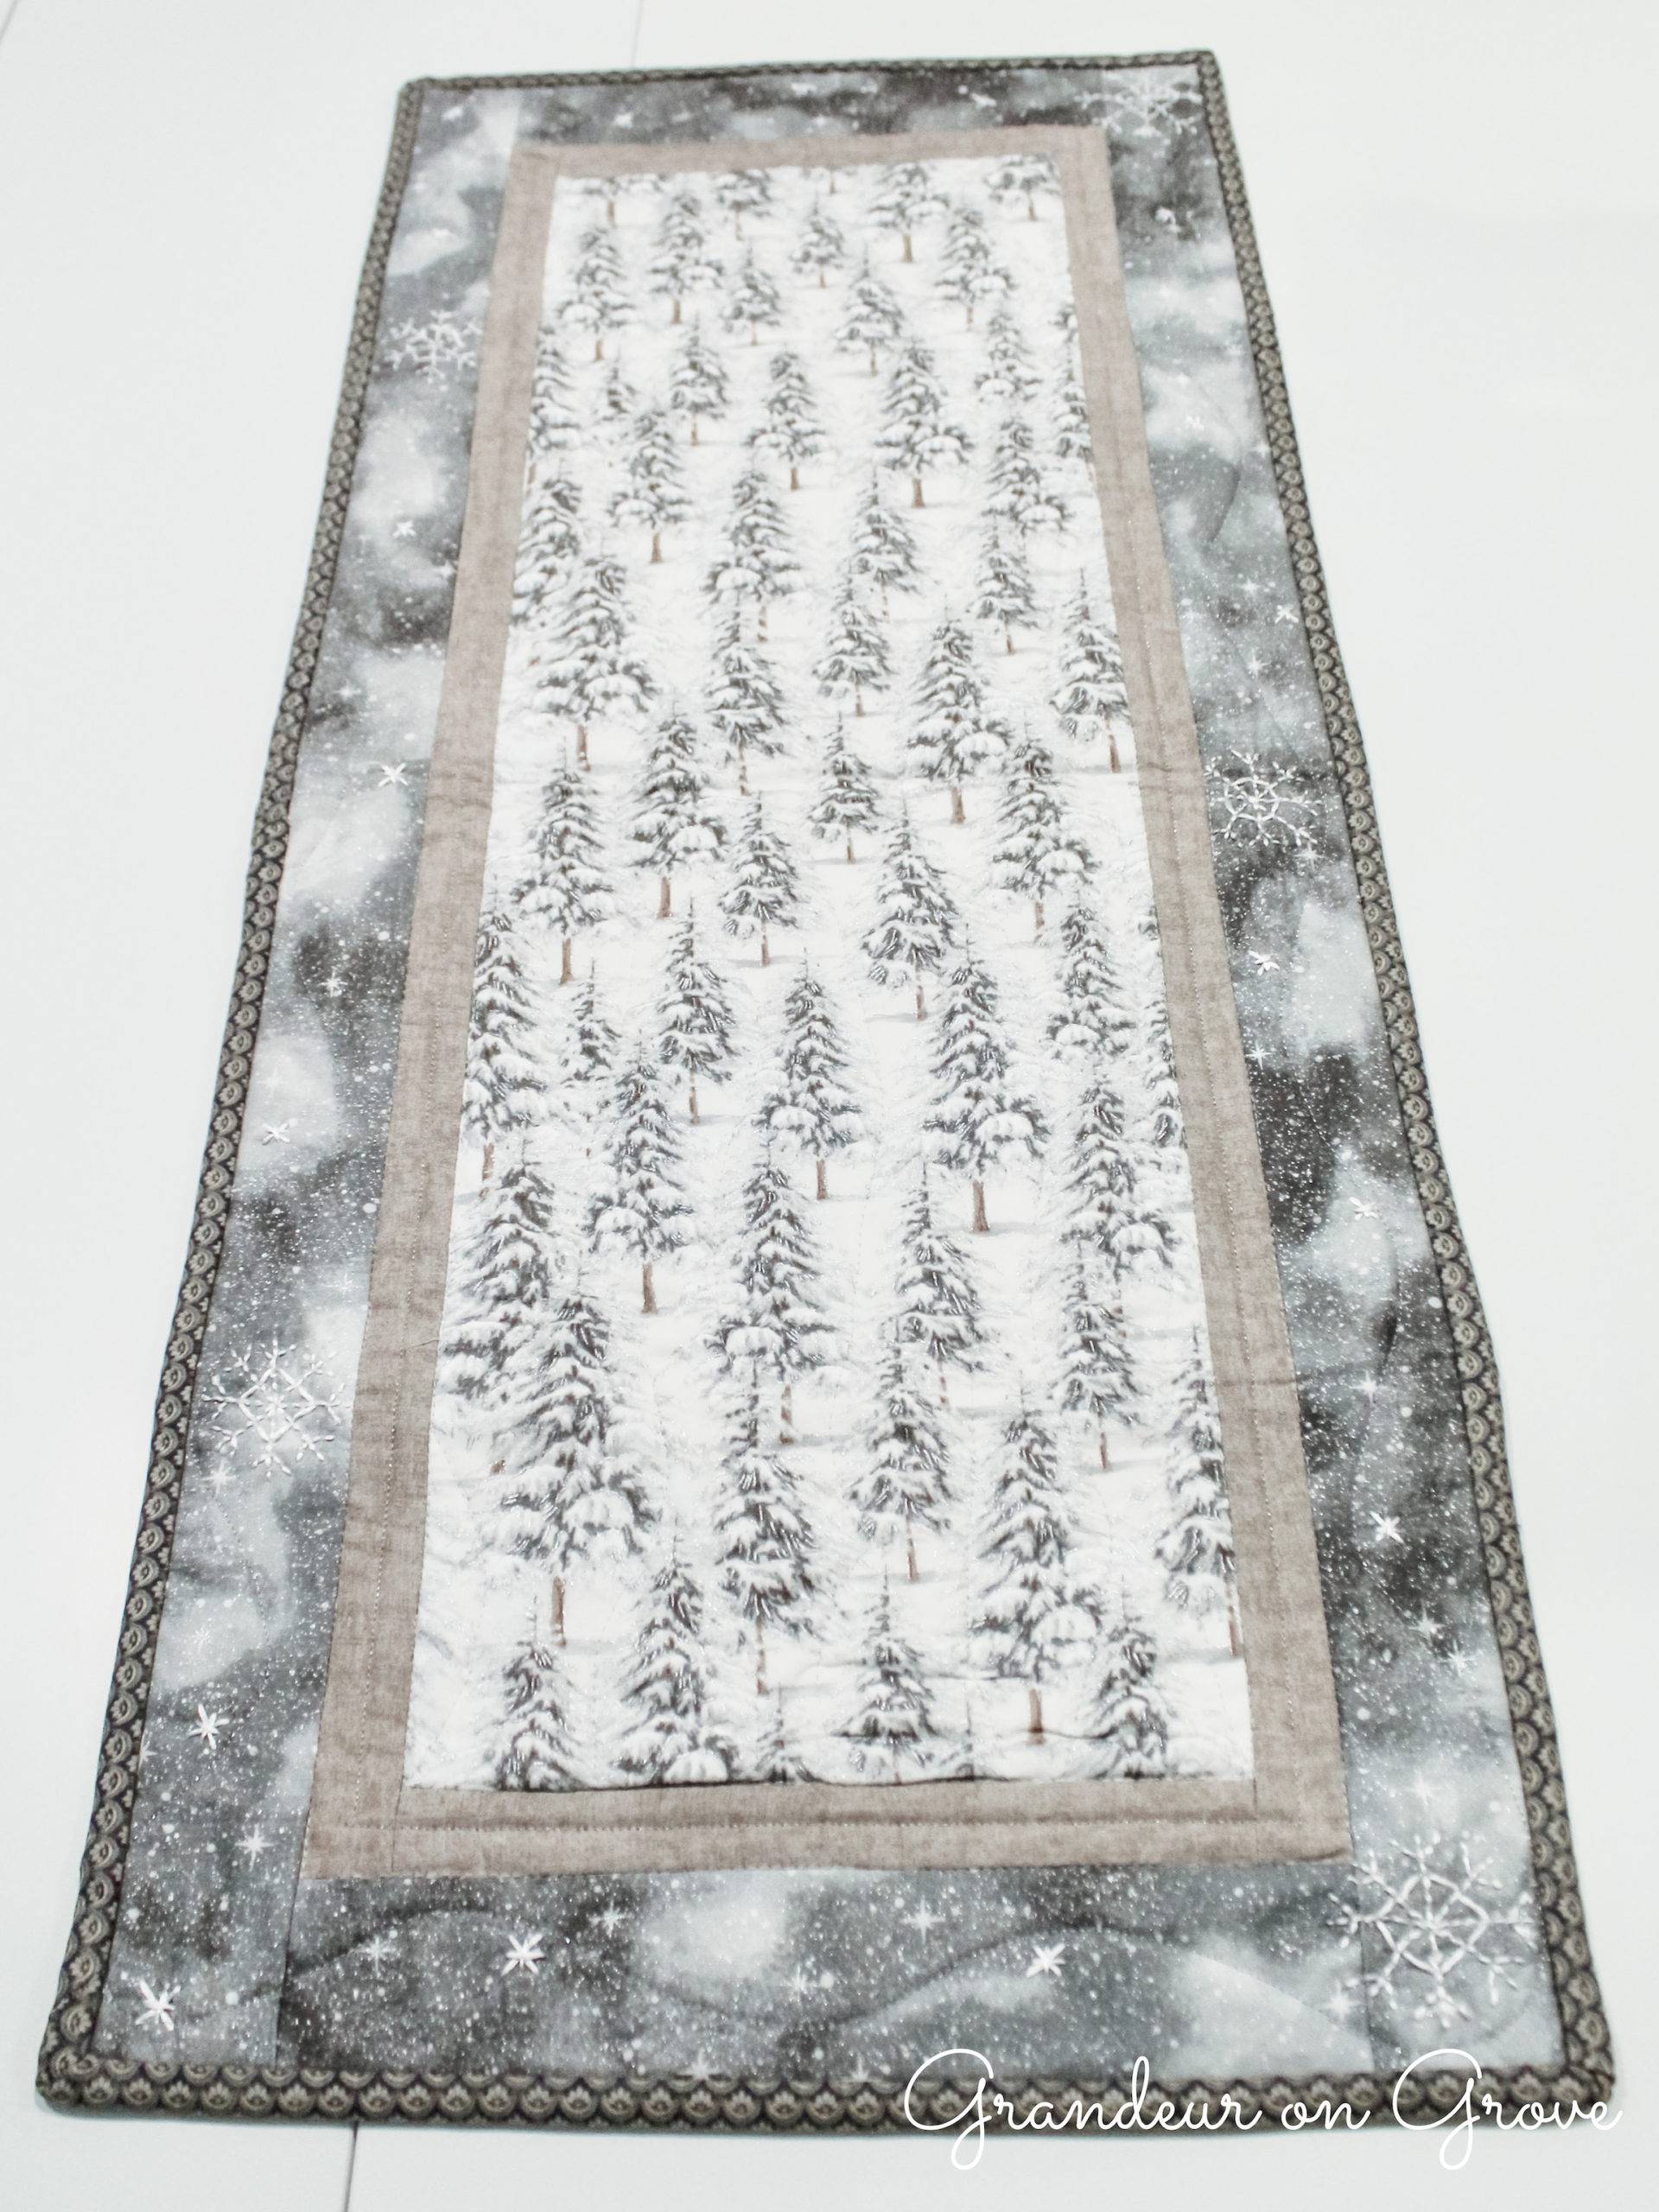 Grandeur on Grove